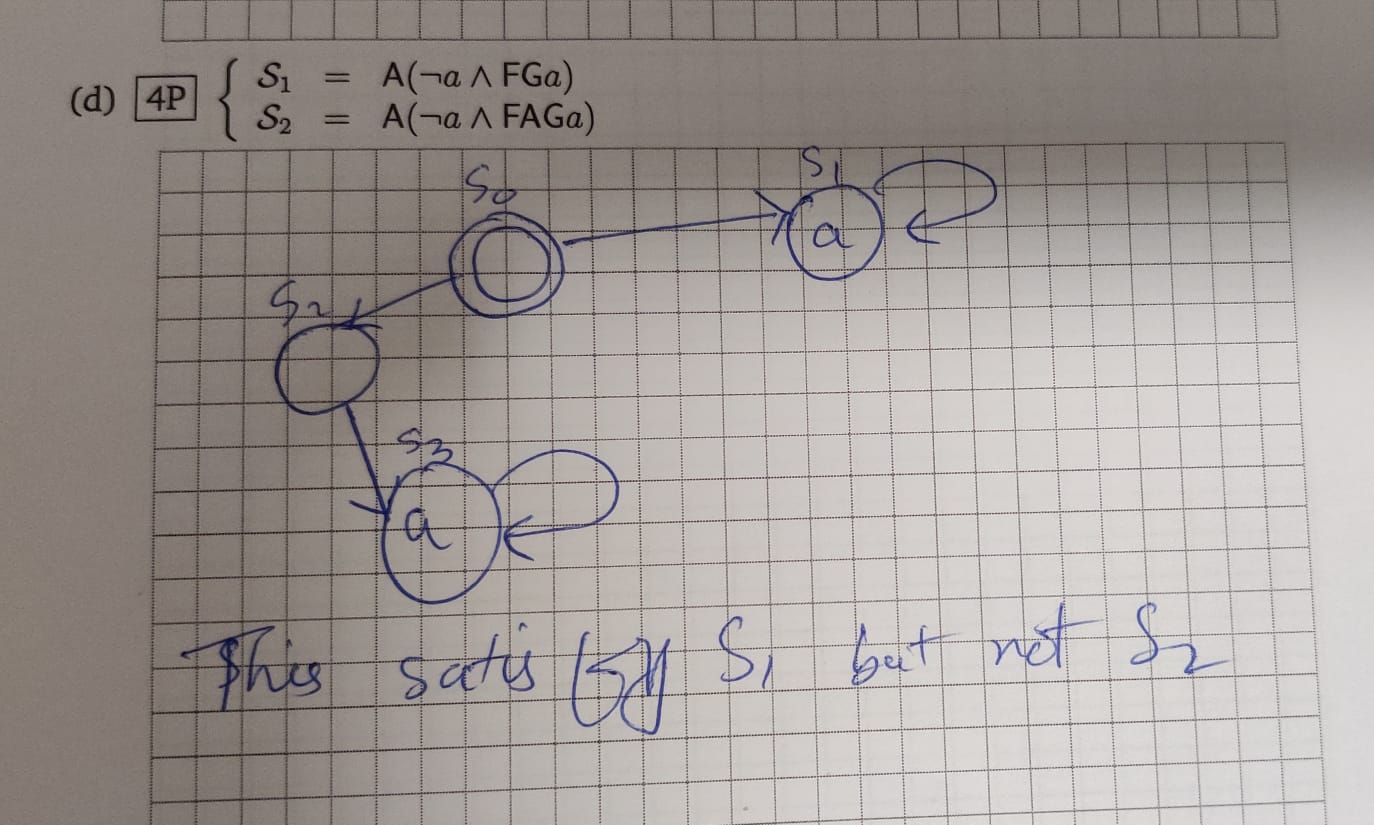 (d) 4P { S₁ = A(¬a ∧ FGa)
S₂ = A(¬a ∧ FAGa)
S₀
S₁
a
S₂
S₃
a
This satisfy S₁ but not S₂